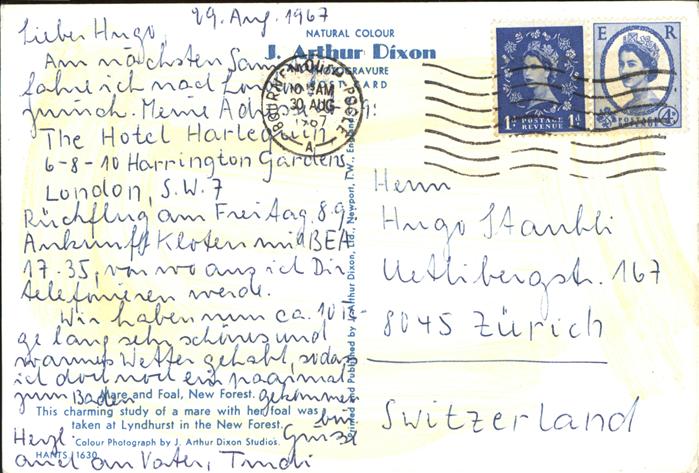 29. Aug. 1967
Lieber Hugo,
Am nächsten
fahre ich nach
zurück. Meine
The Hotel
6-8-10 Harrington Gardens
London, S.W.7
Rückflug am Freitag, 8.9.
Ankunft Kloten mit BEA
17.35, von wo aus ich Dir
telefonieren werde.
Wir haben nun ca. 10
ge lang sehr schönes und
warmes Wetter gehabt, sodass
ich doch noch ein paarmal
zum Baden gekommen
bin
Herzl. Gruss
auch an Vater, Trudi
NATURAL COLOUR
J. Arthur Dixon
PHOTOGRAVURE
POST CARD
10 AM
30 AUG
1967
A
POSTAGE REVENUE
1D 1D
E R
POSTAGE
4D
Printed and Published by J. Arthur Dixon, Ltd., Newport, I.W., England
Herrn
Hugo Stäubli
Uetlibergst. 167
8045 Zürich
Switzerland
Mare and Foal, New Forest.
This charming study of a mare with her foal was
taken at Lyndhurst in the New Forest.
Colour Photograph by J. Arthur Dixon Studios.
HANTS 1630